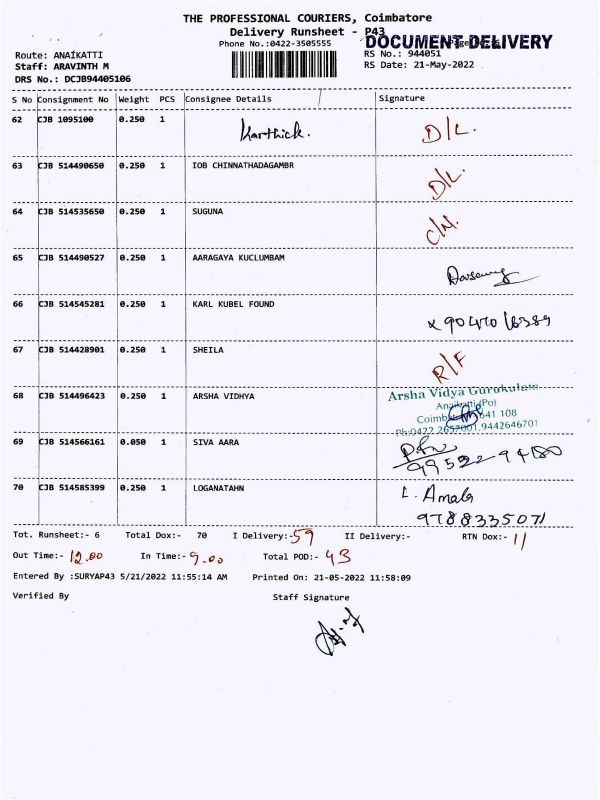 THE PROFESSIONAL COURIERS, Coimbatore
Delivery Runsheet - P43
DOCUMENT DELIVERY
Phone No.:0422-3505555
Route: ANAIKATTI
RS No.: 944051
Staff: ARAVINTH M
RS Date: 21-May-2022
DRS No.: DCJB94405106
S No Consignment No Weight PCS Consignee Details Signature
62 CJB 1095100 0.250 1 Karthick. D/L.
63 CJB 514490650 0.250 1 IOB CHINNATHADAGAMBR D/L.
64 CJB 514535650 0.250 1 SUGUNA
65 CJB 514490527 0.250 1 AARAGAYA KUCLUMBAM
66 CJB 514545281 0.250 1 KARL KUBEL FOUND
67 CJB 514428901 0.250 1 SHEILA R/F
68 CJB 514496423 0.250 1 ARSHA VIDHYA Arsha Vidya Gurukulam
Anaikatti (Po)
641 108
Ph:0422 2657001, 9442646701
69 CJB 514566161 0.050 1 SIVA AARA
70 CJB 514585399 0.250 1 LOGANATAHN L. Amala
9788335071
Tot. Runsheet:- 6 Total Dox:- 70 I Delivery:-59 II Delivery:- RTN Dox:- 11
Out Time:- 12.00 In Time:- 9.00 Total POD:- 43
Entered By :SURYAP43 5/21/2022 11:55:14 AM Printed On: 21-05-2022 11:58:09
Verified By Staff Signature